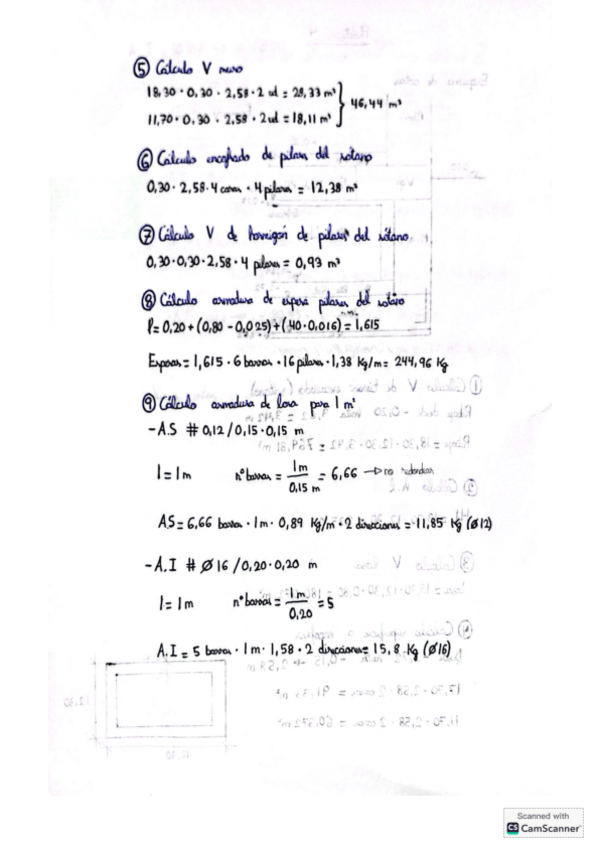 ⑤ Cálculo V muro
18,30 · 0,30 · 2,58 · 2 ud = 28,33 m³
11,70 · 0,30 · 2,58 · 2 ud = 18,11 m³
46,44 m³
⑥ Cálculo encofrado de pilares del sótano
0,30 · 2,58 · 4 caras · 4 pilares = 12,38 m²
⑦ Cálculo V de hormigón de pilares del sótano
0,30 · 0,30 · 2,58 · 4 pilares = 0,93 m³
⑧ Cálculo armadura de espera pilares del sótano
P = 0,20 + (0,80 - 0,025) + (40 · 0,016) = 1,615
Esperas = 1,615 · 6 barras · 16 pilares · 1,38 Kg/m = 244,96 Kg
⑨ Cálculo armadura de losa para 1 m²
- A.S # 0,12 / 0,15 · 0,15 m
l = 1m nº barras = 1m / 0,15 m = 6,66 → no redondear
A.S = 6,66 barras · 1m · 0,89 Kg/m · 2 direcciones = 11,85 Kg (Ø12)
- A.I # Ø16 / 0,20 · 0,20 m
l = 1m nº barras = 1m / 0,20 = 5
A.I = 5 barras · 1m · 1,58 · 2 direcciones = 15,8 Kg (Ø16)
Scanned with
CS CamScanner